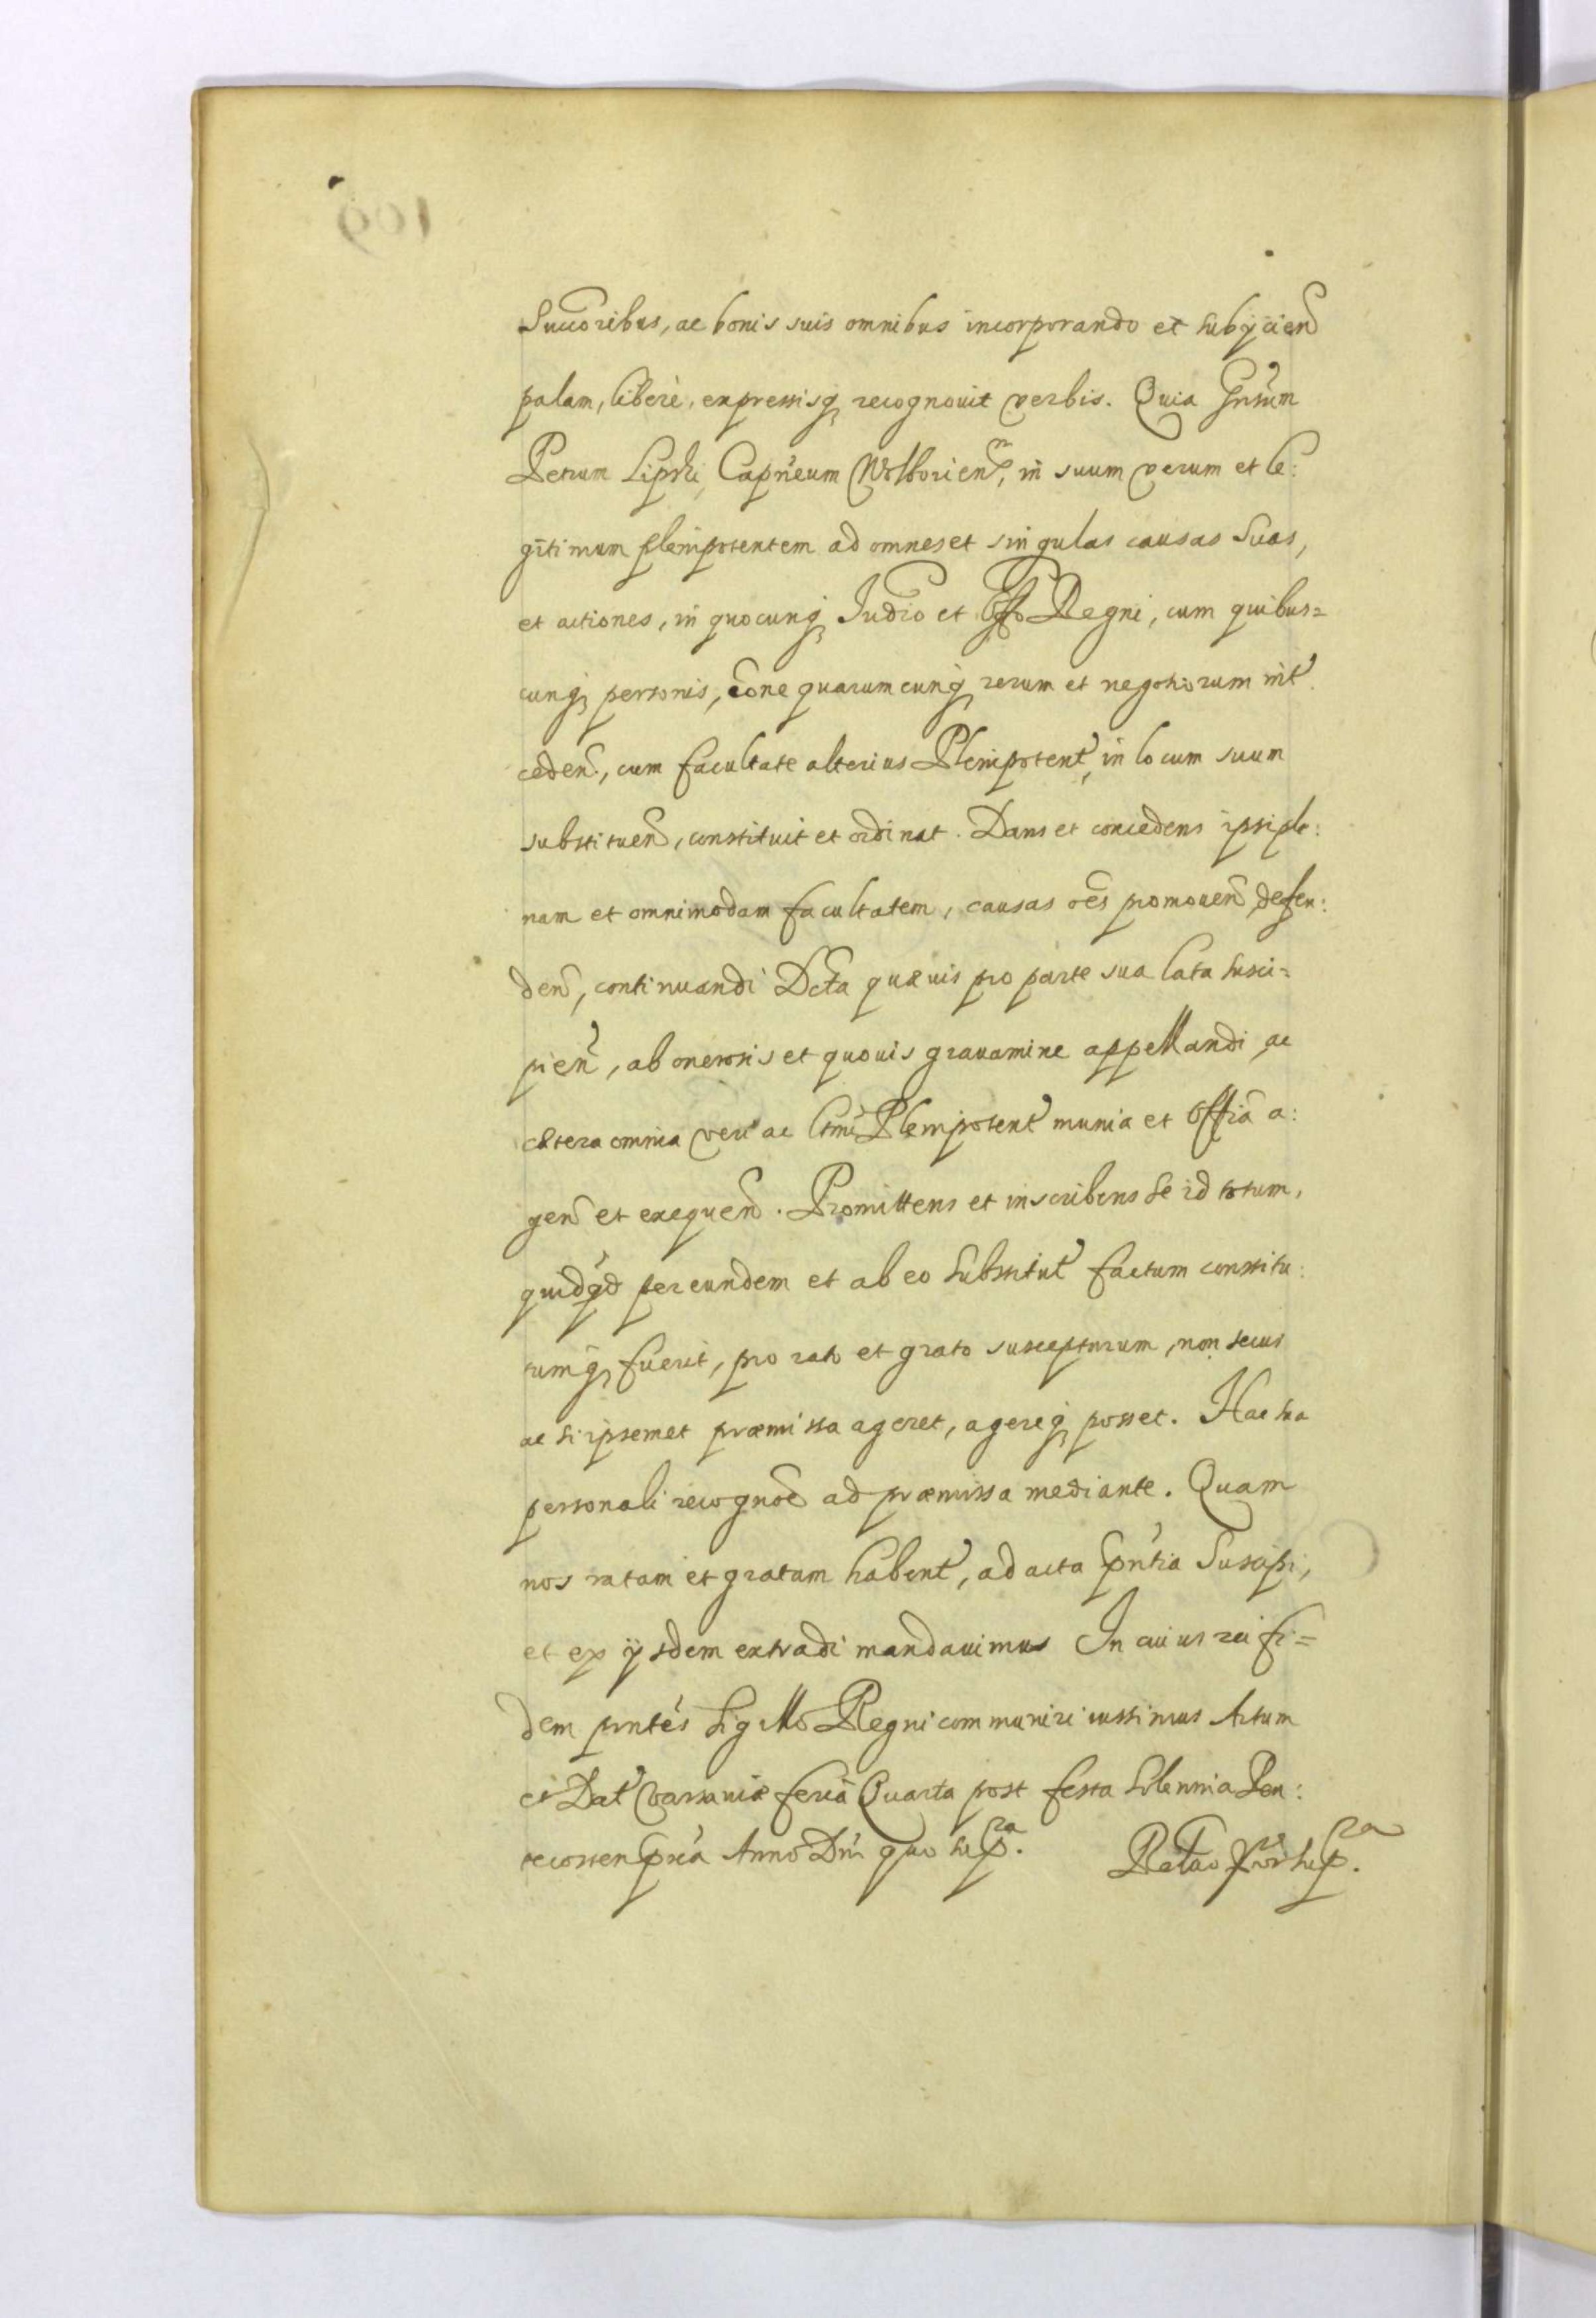 Succoribus, ac bonis suis omnibus incorporando et subÿcien
palam, liberè, expressisq recognouit verbis. Quia Gnsum
Petrum Lipski, Capneum Wolborien, in suum verum et le:
gitimum plenipotentem ad omnes et singulas causas suas,
et actiones, in quocunq Judio et Offo Regni, cum quibus=
cunq personis, cone quarumcunq rerum et negotiorum int
ceden., cum facultate alterius Plenipotent, in locum suum
substituen, constituit et ordinat. Dans et concedens ipsi ple:
nam et omnimodam facultatem, causas oes promouen, defen:
den, continuandi Dcta quæuis pro parte sua lata susci=
pien, ab onerosis et quouis grauamine appellandi, ac
cætera omnia veri ac ltmi Plenipotent munia et Offia a:
gen et exequen. Promittens et inscribens se id totum,
quidqd per eundem et ab eo substitut factum constitu:
tumq fuerit, pro rato et grato suscepturum, non secus
ac si ipsemet præmissa ageret, agereq posset. Hac sua
personali recognoe ad præmissa mediante. Quam
nos ratam et gratam habent, ad acta pntia suscipi,
et ex ÿsdem extradi mandauimus In cuius rei fi=
dem pntes Sigillo Regni communiri iussimus Actum
et Dat Varsauiæ feria Quarta post festa solennia Pen:
tecosten pxia Anno Dni quo sup.ra
Relao pror sup.ra
109